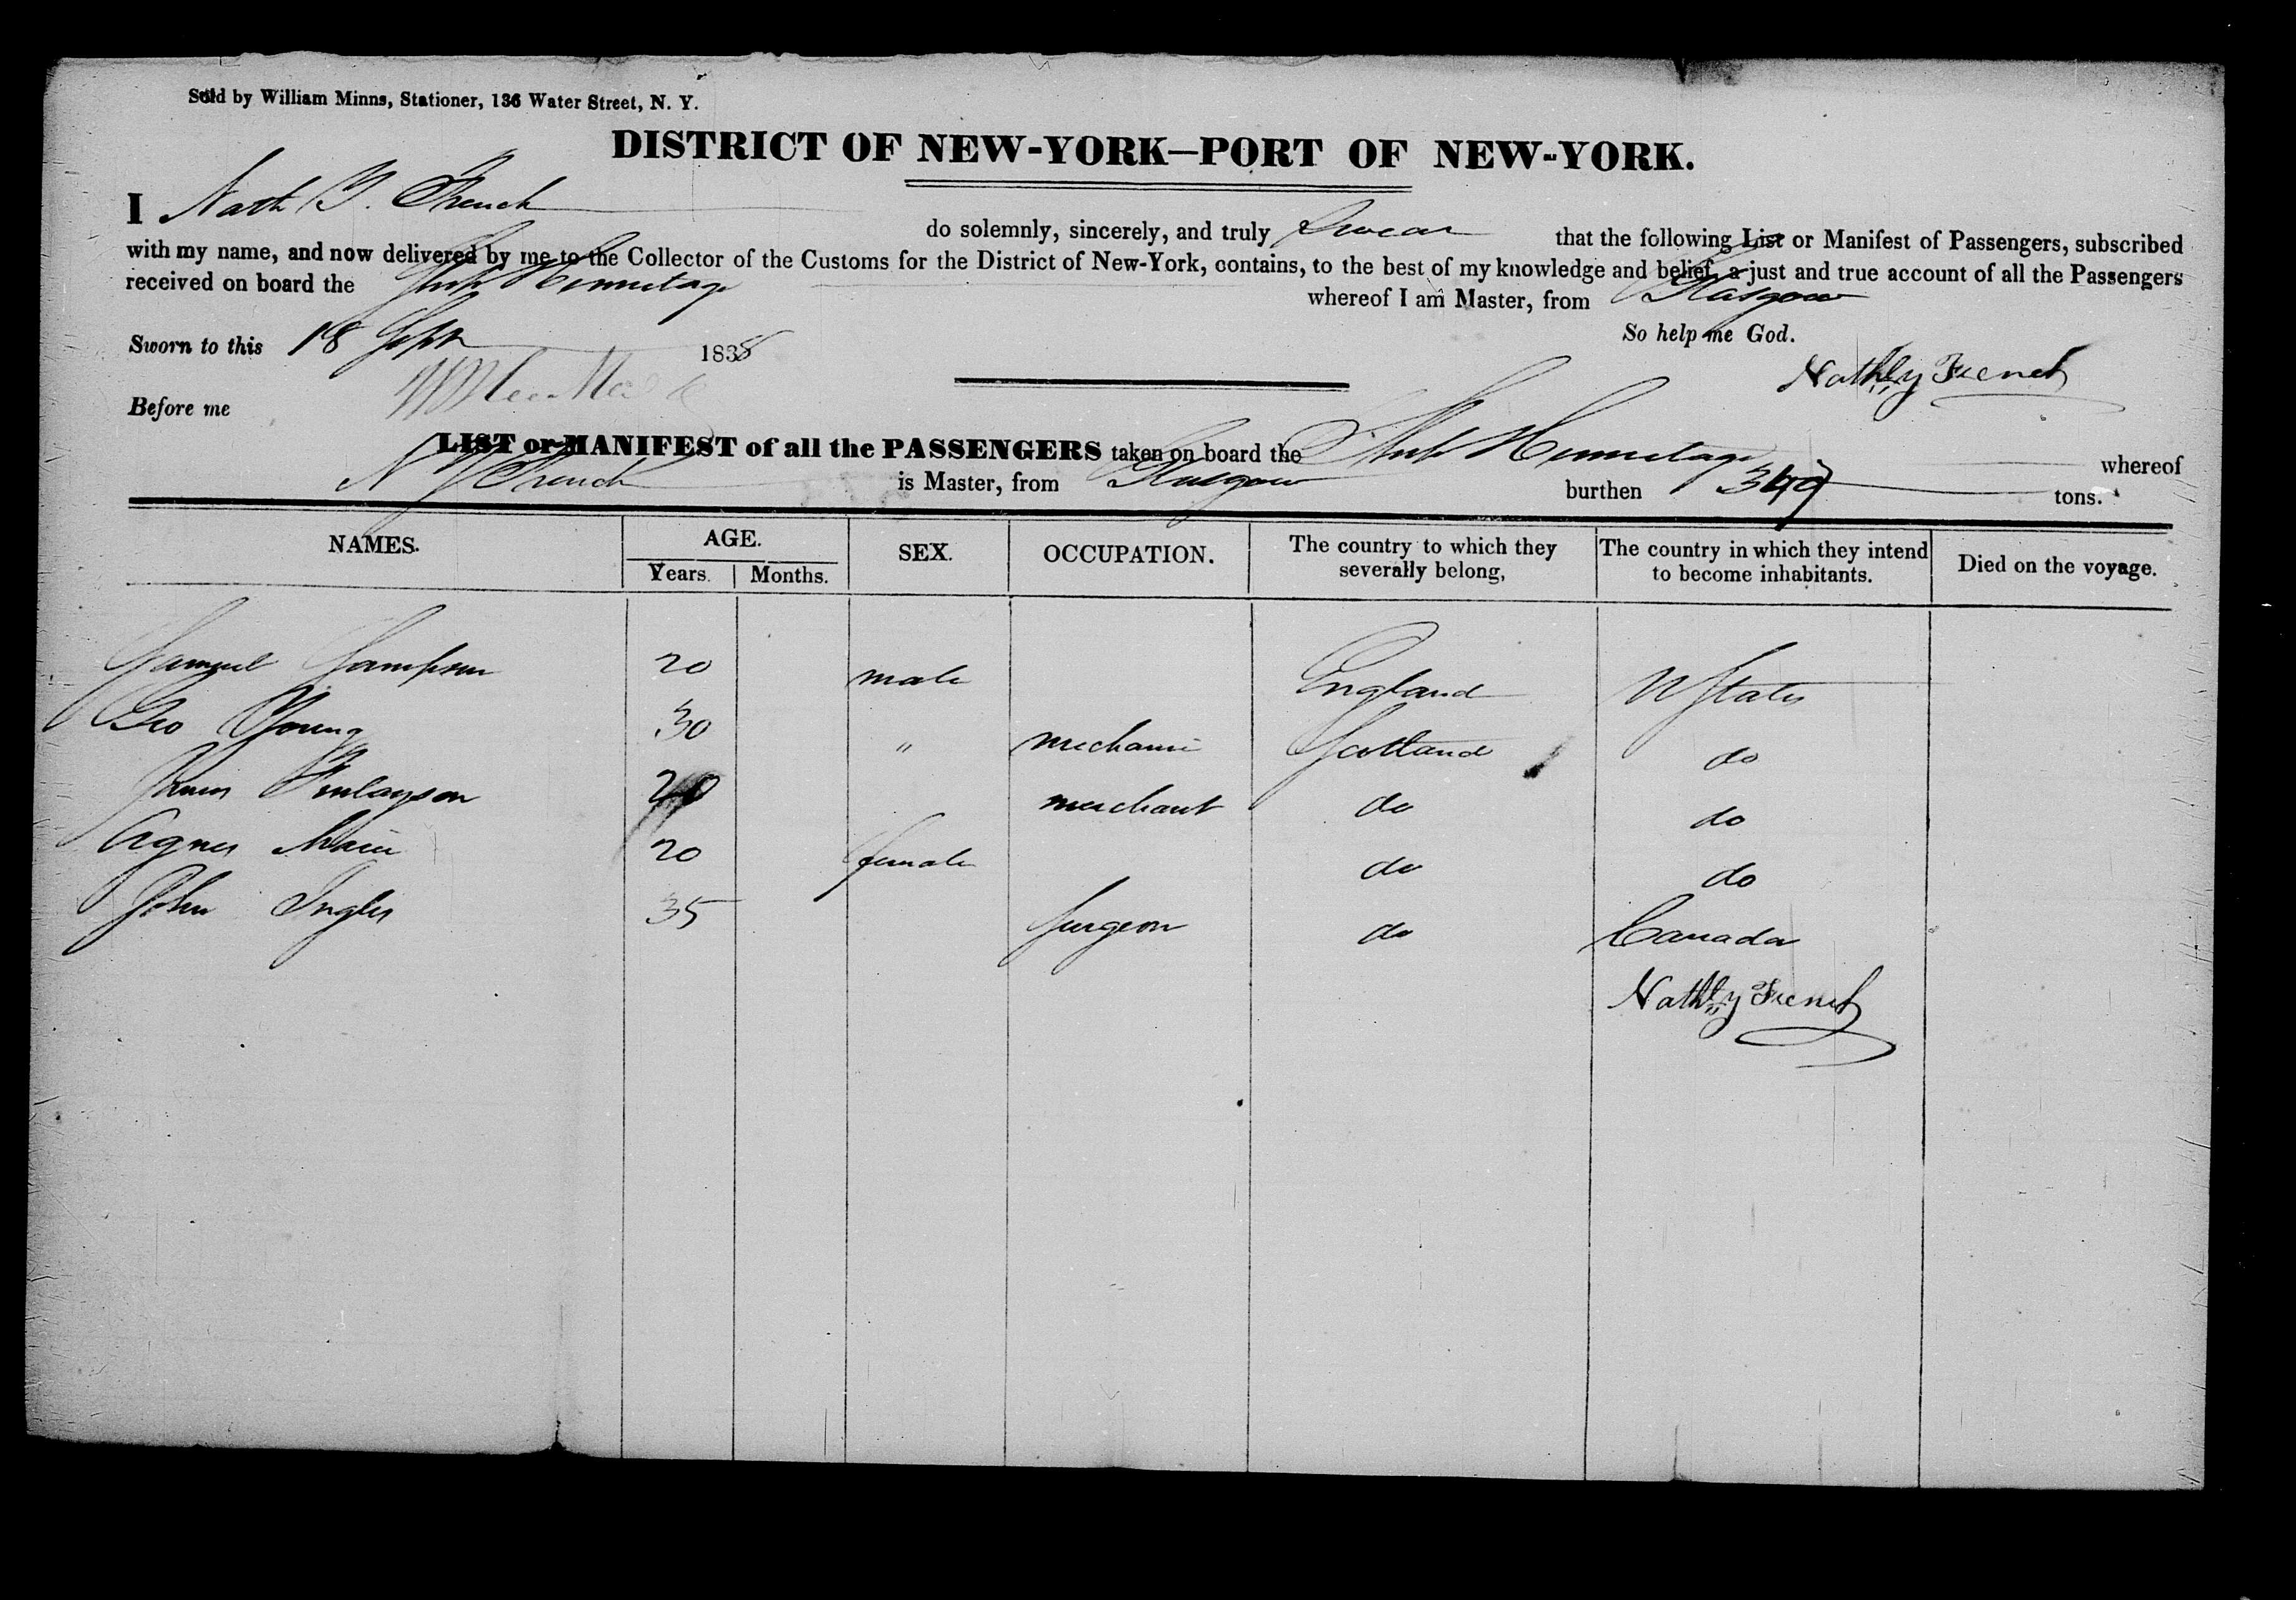 Sold by William Minns, Stationer, 136 Water Street, N. Y.
DISTRICT OF NEW-YORK—PORT OF NEW-YORK.
I Nath Y. French do solemnly, sincerely, and truly Swear that the following List or Manifest of Passengers, subscribed
with my name, and now delivered by me to the Collector of the Customs for the District of New-York, contains, to the best of my knowledge and belief, a just and true account of all the Passengers
received on board the Ship Hermitage whereof I am Master, from Glasgow
Sworn to this 18 Sept 1838 So help me God.
Before me
LIST or MANIFEST of all the PASSENGERS taken on board the Ship Hermitage whereof
N Y French is Master, from Glasgow burthen 349 tons.
NAMES. AGE. SEX. OCCUPATION. The country to which they severally belong, The country in which they intend to become inhabitants. Died on the voyage.
Years. Months.
Samuel Sampson 20 male England U States
Geo Young 30 " mechanic Scotland do
James Finlayson 20 merchant do do
Agnes 20 female do do
John Inglis 35 Surgeon do Canada